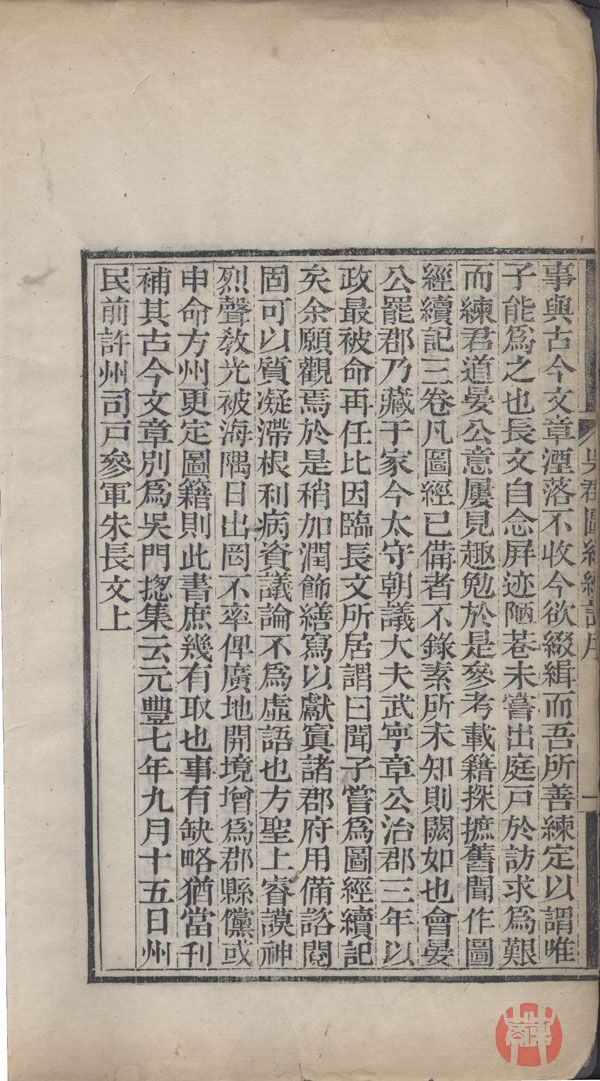 吳郡圖經續記序
一
事與古今文章湮落不收今欲綴緝而吾所善練定以謂唯
子能爲之也長文自念屏迹陋巷未嘗出庭戸於訪求爲艱
而練君道晏公意屢見趣勉於是參考載籍探摭舊聞作圖
經續記三卷凡圖經已備者不錄素所未知則闕如也會晏
公罷郡乃藏于家今太守朝議大夫武寧章公治郡三年以
政最被命再任比因臨長文所居謂曰聞子嘗爲圖經續記
矣余願觀焉於是稍加潤飾繕寫以獻寘諸郡府用備諮閱
固可以質凝滯根利病資議論不爲虛語也方聖上睿謨神
烈聲敎光被海隅日出罔不率俾廣地開境增爲郡縣儻或
申命方州更定圖籍則此書庶幾有取也事有缺略猶當刊
補其古今文章別爲吳門揔集云元豐七年九月十五日州
民前許州司戸參軍朱長文上